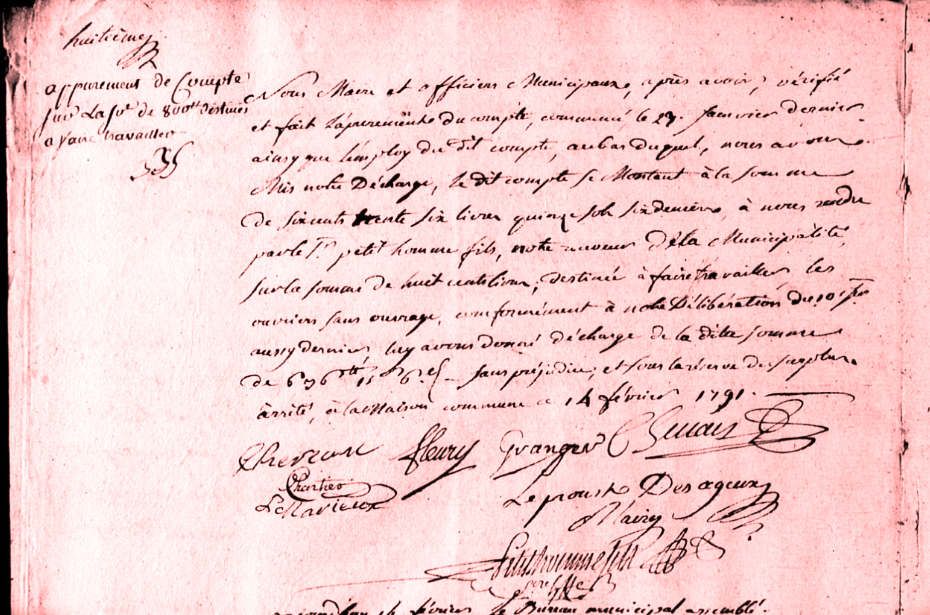 huitième
appurement de Compte
sur La so.e de 800tt destinée
a faire travailler
Nous Maire et officiers Municipaux, après avoir, vérifié
et fait L'apurement du compte, commencé, le 23. Janvier dernier
ainsy que l'employ du dit compte, au bas duquel, nous avons
Mis notre Décharge, le dit compte se Montant à la somme
de six cents trente six livres quinze sols six deniers, à nous rendu
par le Sr. petit homme fils, notre receveur de la Municipalité,
sur la somme de huit cents livres, destinée à faire travailler les
ouvriers sans ouvrage, conformément à notre Délibération du 10
aussy dernier luy avons donné décharge de la dite somme
de 636tt 15s 6d. sans préjudice, et sous la réserve du surplus.
arrêté, à la Maison commune ce 14 février 1791.
fleury Granger
Chartier
Le proust Desageux
Maire
petithomme fils
février le Bureau municipal assemblé.